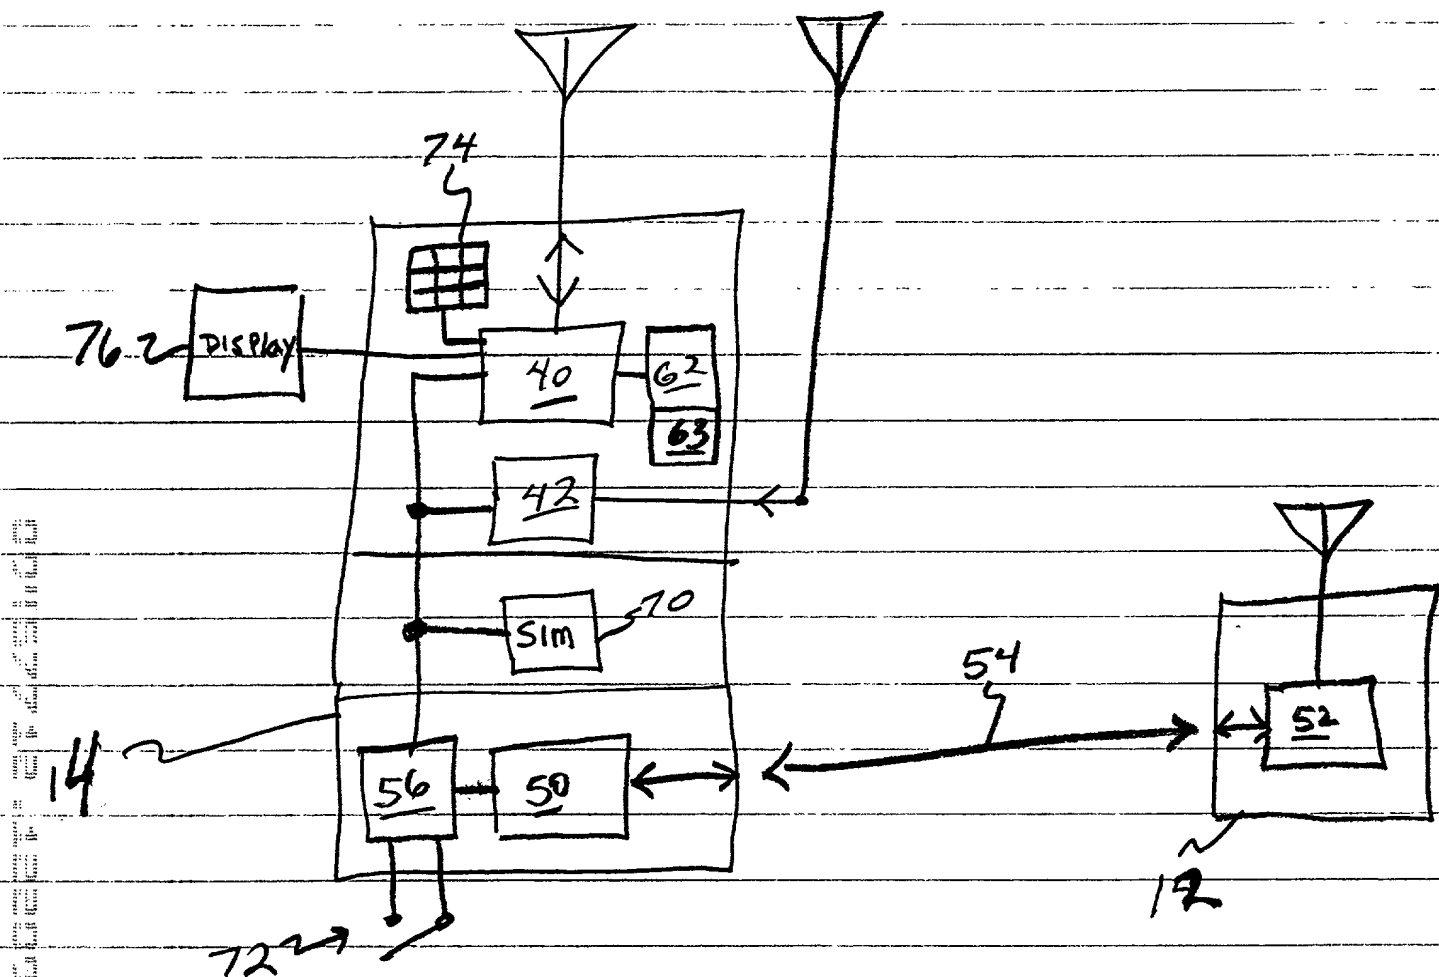 74
76
Display
40
62
63
42
SIM
70
54
52
14
56
50
12
72